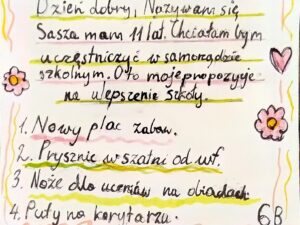 Dzień dobry, Nazywam się
Sasza mam 11 lat. Chciałam bym
uczęstniczyć w samorządzie
szkolnym. Oto moje propozycje
na ulepszenie szkoły.
1. Nowy plac zabaw.
2. Prysznic w szatni od wf.
3. Noże dla uczniów na obiadach
4. Pufy na korytarzu.
6B